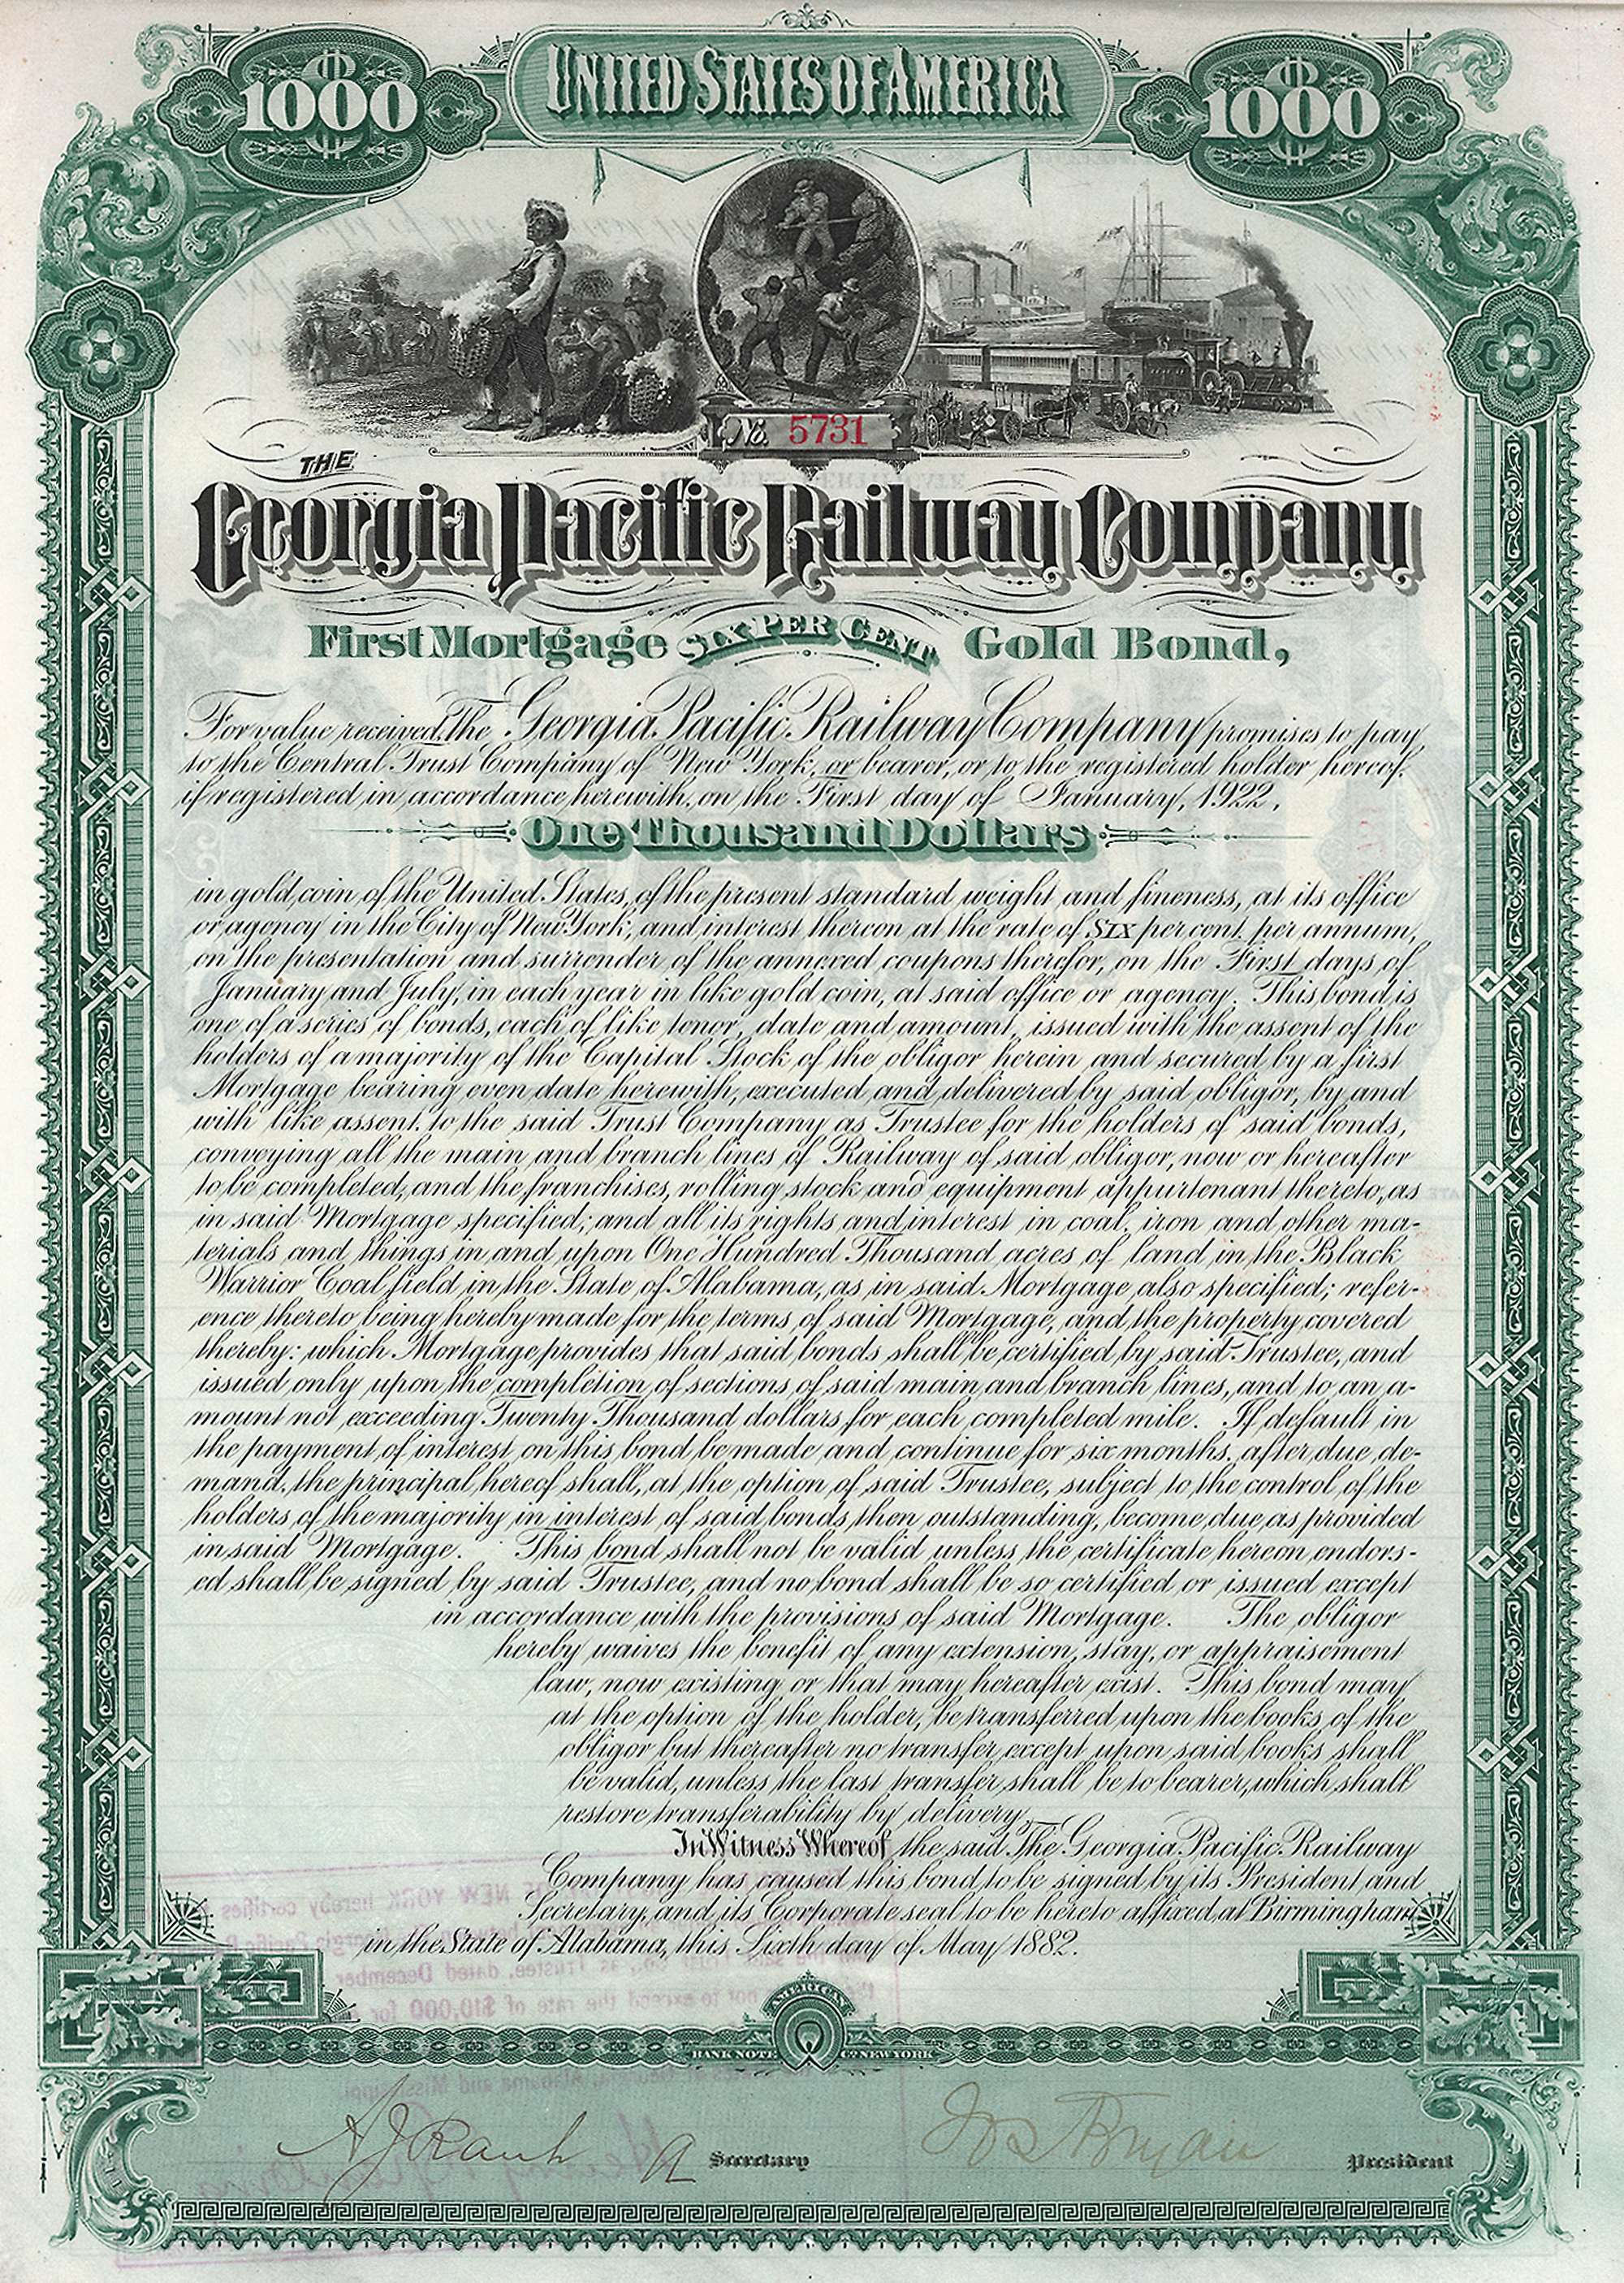 UNITED STATES OF AMERICA
$ 1000
$ 1000
No. 5731
THE
Georgia Pacific Railway Company
First Mortgage SIX PER CENT Gold Bond,
For value received, The Georgia Pacific Railway Company promises to pay
to the Central Trust Company of New York, or bearer, or to the registered holder hereof,
if registered in accordance herewith, on the First day of January, 1922,
One Thousand Dollars
in gold coin of the United States, of the present standard weight and fineness, at its office
or agency in the City of New York, and interest thereon at the rate of SIX per cent. per annum,
on the presentation and surrender of the annexed coupons therefor, on the First days of
January and July, in each year in like gold coin, at said office or agency. This bond is
one of a series of bonds, each of like tenor, date and amount, issued with the assent of the
holders of a majority of the Capital Stock of the obligor herein and secured by a first
Mortgage bearing even date herewith, executed and delivered by said obligor, by and
with like assent, to the said Trust Company as Trustee for the holders of said bonds,
conveying all the main and branch lines of Railway of said obligor, now or hereafter
to be completed, and the franchises, rolling stock and equipment appurtenant thereto, as
in said Mortgage specified; and all its rights and interest in coal, iron and other ma-
terials and things in and upon One Hundred Thousand acres of land in the Black
Warrior Coal field in the State of Alabama, as in said Mortgage also specified; refer-
ence thereto being hereby made for the terms of said Mortgage, and the property covered
thereby: which Mortgage provides that said bonds shall be certified by said Trustee, and
issued only upon the completion of sections of said main and branch lines, and to an a-
mount not exceeding Twenty Thousand dollars for each completed mile. If default in
the payment of interest on this bond be made and continue for six months, after due de-
mand, the principal hereof shall, at the option of said Trustee, subject to the control of the
holders of the majority in interest of said bonds then outstanding, become due, as provided
in said Mortgage. This bond shall not be valid unless the certificate hereon endors-
ed shall be signed by said Trustee, and no bond shall be so certified or issued except
in accordance with the provisions of said Mortgage. The obligor
hereby waives the benefit of any extension, stay, or appraisement
law, now existing or that may hereafter exist. This bond may
at the option of the holder, be transferred upon the books of the
obligor but thereafter no transfer except upon said books shall
be valid, unless the last transfer shall be to bearer, which shall
restore transferability by delivery.
In Witness Whereof the said The Georgia Pacific Railway
Company has caused this bond to be signed by its President and
Secretary, and its Corporate seal to be hereto affixed, at Birmingham
in the State of Alabama, this Sixth day of May 1882.
AMERICAN
BANK NOTE CO NEW YORK
Secretary
President